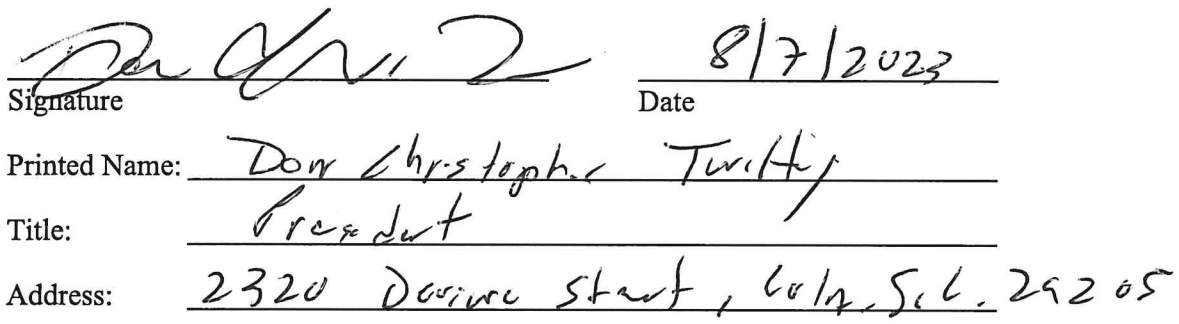 8/7/2023
Signature Date
Printed Name: Don Christopher Twitty
Title: President
Address: 2320 Devine Street, Cola, S.C. 29205